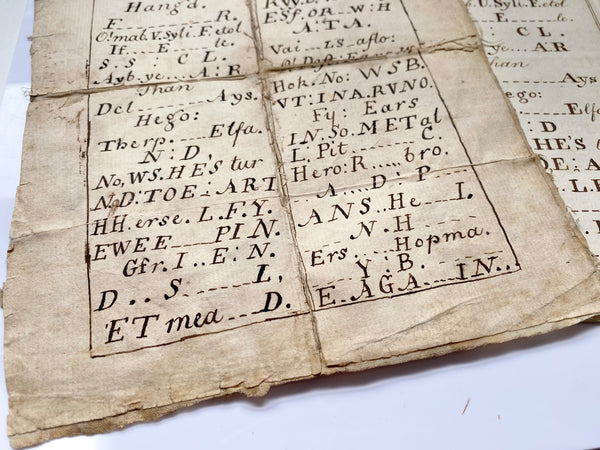 Hang'd.
E R.
O! mal. V. Syli. E. etol
If. E le.
s. s : C L.
Ayb. ye. A : R
Than
Del Ays.
Hego:
Therp. Elfa.
N : D
No, WS. HE'S tur
N. D: TOE: ART
HH. erse. L. F. Y.
EWEE PIN.
Gfr. I .. E : N.
D .. S L,
ET mea D.
ESf. OR W: H
A : T A.
Vai LS aflo:
Hok. No: WSB.
VT: INA. RVNO.
Fy: Ears
IN. So. METal
L: Pit C.
Hero: R bro.
A D : P
ANS. He I.
N. H
Ers Hopma.
Y : B.
E AGA IN.
U. Syli. E. etol
le.
: CL.
ye. AR
han
Ays
ego:
Elfa
: D
HE's t